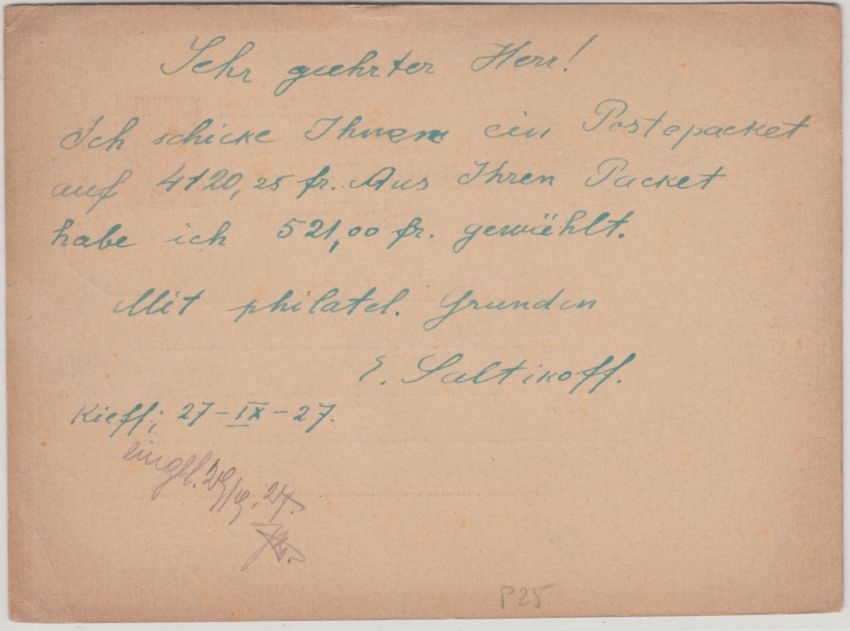 Sehr geehrter Herr!
Ich schicke Ihnen ein Postopacket
auf 4120,25 fr. Aus Ihren Packet
habe ich 521,00 fr. gewählt.
Mit philatel. Grunden
E. Saltikoff.
Kieff; 27-IX-27.
29/9.27.
P25